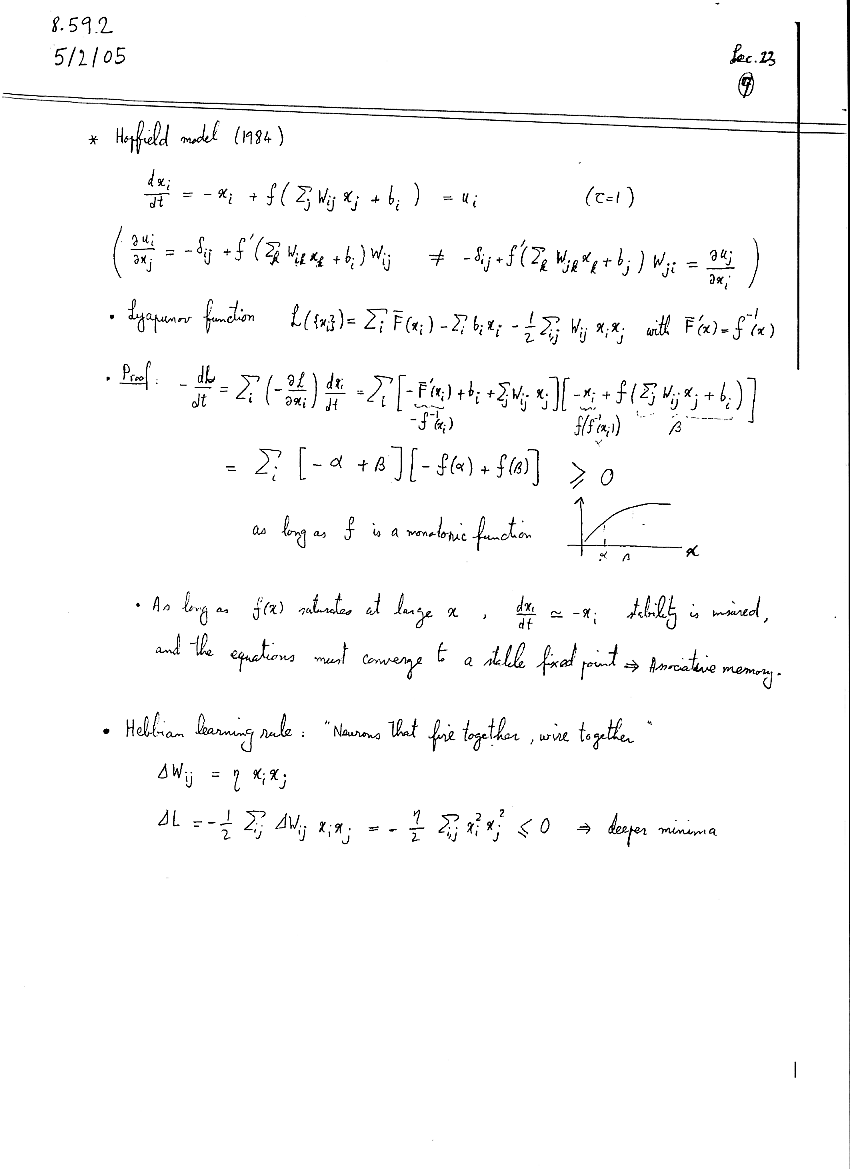 8.592
5/2/05
Lec. 23
9
* Hopfield model (1984)
dx_i/dt = - x_i + f( Σ_j W_ij x_j + b_i ) = u_i (τ=1)
( ∂u_i/∂x_j = - δ_ij + f'( Σ_k W_ik x_k + b_i ) W_ij ≠ - δ_ij + f'( Σ_k W_jk x_k + b_j ) W_ji = ∂u_j/∂x_i )
• Lyapunov function L({x_i}) = Σ_i F(x_i) - Σ_i b_i x_i - 1/2 Σ_ij W_ij x_i x_j with F'(x) = f^-1(x)
• Proof: - dL/dt = Σ_i ( - ∂L/∂x_i ) dx_i/dt = Σ_i [ - F'(x_i) + b_i + Σ_j W_ij x_j ] [ - x_i + f( Σ_j W_ij x_j + b_i ) ]
- f^-1(x_i) f(f^-1(x_i)) β
= Σ_i [ - α + β ] [ - f(α) + f(β) ] ⩾ 0
as long as f is a monotonic function
α β x
• As long as f(x) saturates at large x , dx_i/dt ≃ - x_i stability is insured,
and the equations must converge to a stable fixed point ⇒ Associative memory.
• Hebbian learning rule: "Neurons that fire together, wire together"
ΔW_ij = η x_i x_j
ΔL = - 1/2 Σ_ij ΔW_ij x_i x_j = - η/2 Σ_ij x_i^2 x_j^2 ⩽ 0 ⇒ deeper minima